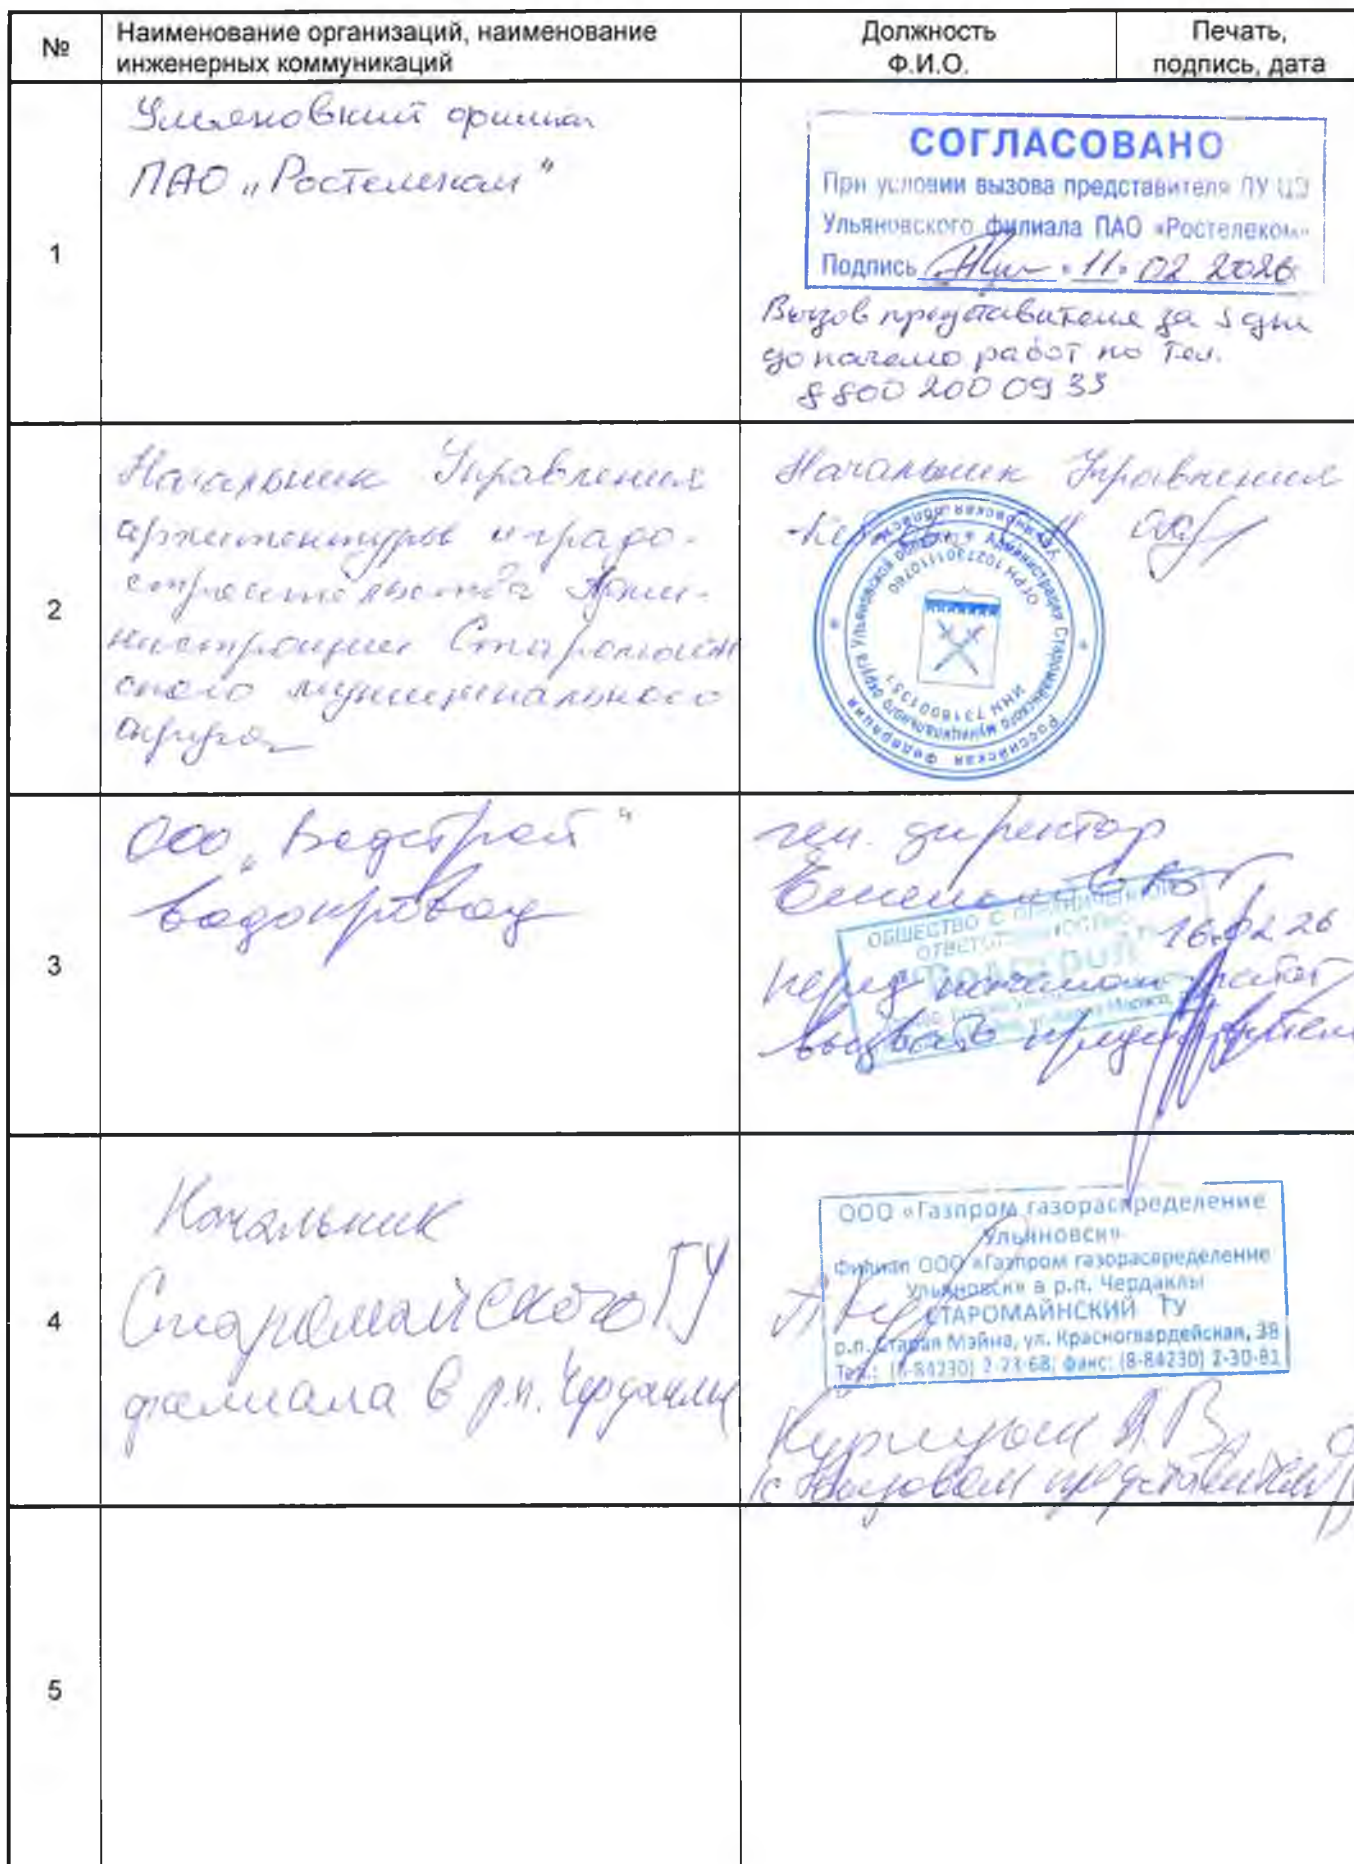 №
Наименование организаций, наименование
инженерных коммуникаций
Должность
Ф.И.О.
Печать,
подпись, дата
1
Ульяновский филиал
ПАО „Ростелеком"
СОГЛАСОВАНО
При условии вызова представителя ЛУ ЦЭ
Ульяновского филиала ПАО «Ростелеком»
Подпись «11» 02 2026
Вызов представителя за 3 дня
до начала работ по тел.
8 800 200 09 33
2
Начальник Управления
архитектуры и градо-
строительства Адми-
нистрации Старомайн
ского муниципального
округа
Начальник Управления
Российская Федерация * Ульяновская область *
Администрация Старомайнского муниципального округа Ульяновской области *
ОГРН 1027301110760
ИНН 7316001351
3
ООО „Водстрой"
водопровод
ген. директор
ОБЩЕСТВО С ОГРАНИЧЕННОЙ
ОТВЕТСТВЕННОСТЬЮ
"Водстрой"
16.02.26
перед началом работ
вызвать представителя
4
Начальник
Старомайнского ГУ
филиала в р.п. Чердаклы
ООО «Газпром газораспределение
Ульяновск»
Филиал ООО «Газпром газораспределение
Ульяновск» в р.п. Чердаклы
СТАРОМАЙНСКИЙ ГУ
р.п. Старая Майна, ул. Красногвардейская, 38
Тел.: (8-84230) 2-23-68; факс: (8-84230) 2-30-81
А.В.
с вызовом представителя
5